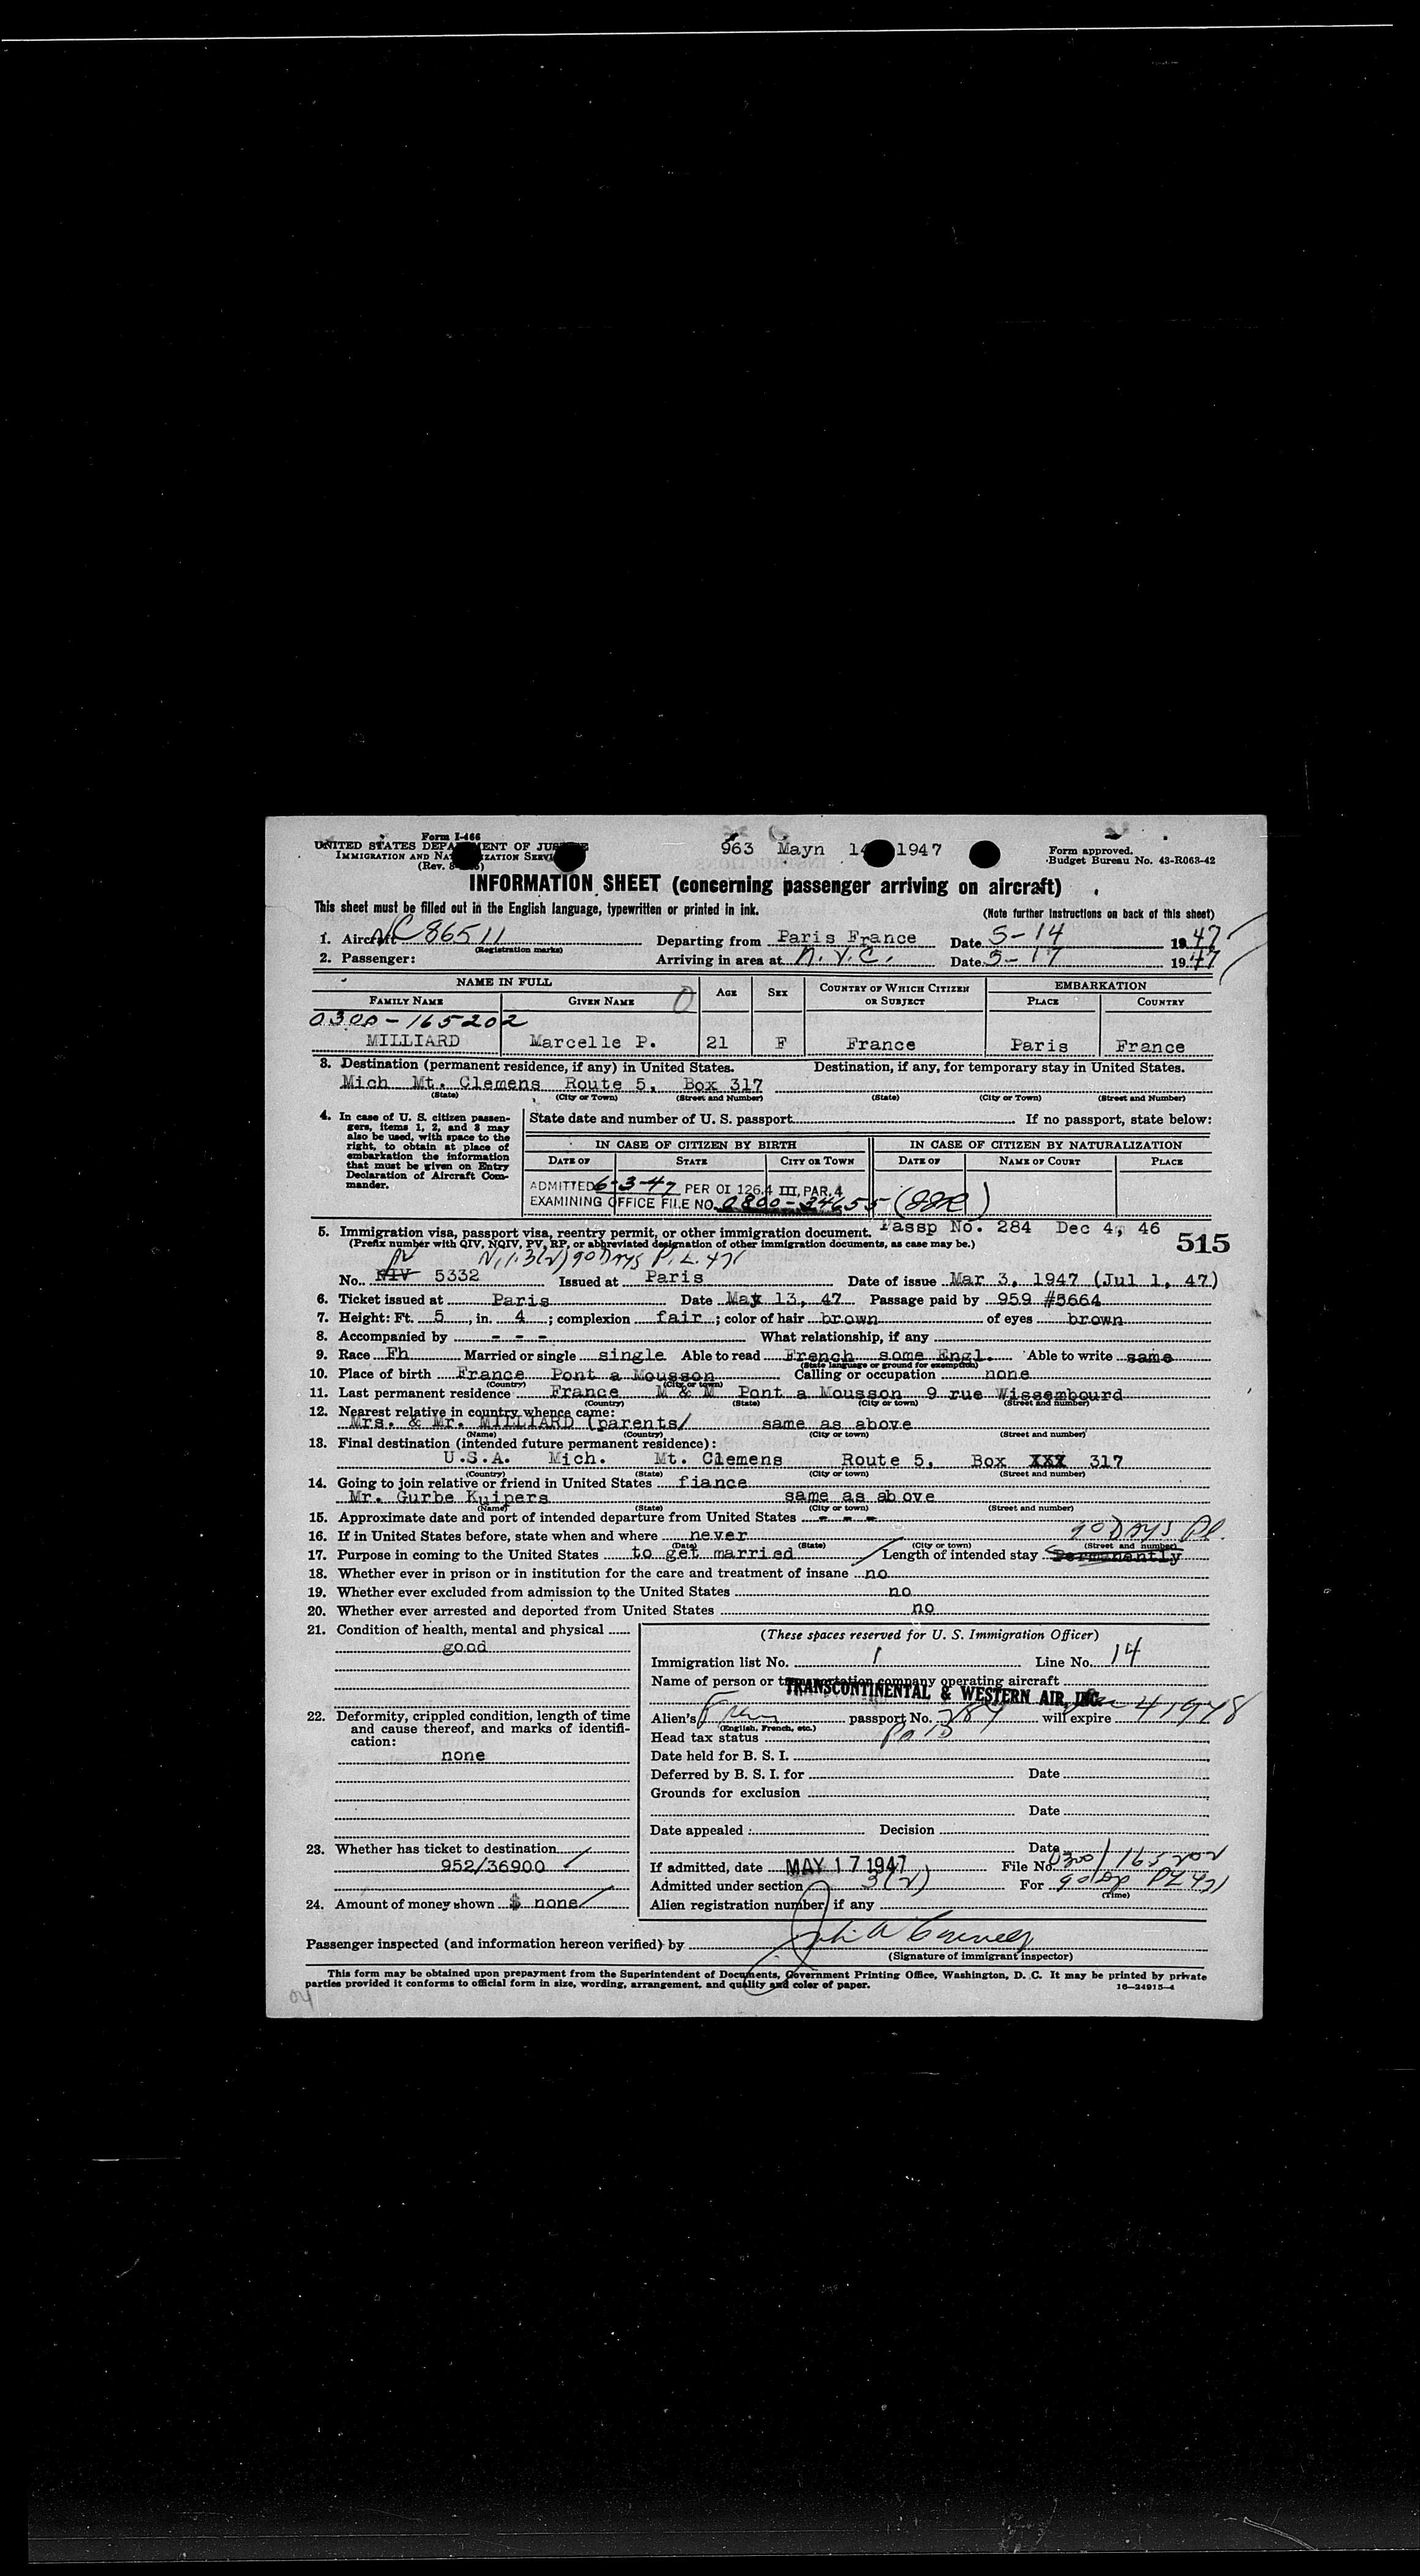 Form I-466
UNITED STATES DEPARTMENT OF JUSTICE
IMMIGRATION AND NATURALIZATION SERVICE
(Rev. 8
963 Mayn 14 1947
Form approved.
Budget Bureau No. 43-R063-42
INFORMATION SHEET (concerning passenger arriving on aircraft)
This sheet must be filled out in the English language, typewritten or printed in ink.
(Note further instructions on back of this sheet)
1. Aircraft NC 86511 Departing from Paris France Date 5-14 1947
(Registration marks)
2. Passenger: Arriving in area at N.Y.C. Date 5-17 1947
NAME IN FULL AGE SEX COUNTRY OF WHICH CITIZEN OR SUBJECT EMBARKATION
FAMILY NAME GIVEN NAME PLACE COUNTRY
0300-165202
MILLIARD Marcelle P. 21 F France Paris France
3. Destination (permanent residence, if any) in United States. Destination, if any, for temporary stay in United States.
Mich Mt. Clemens Route 5, Box 317
(State) (City or Town) (Street and Number) (State) (City or Town) (Street and Number)
4. In case of U. S. citizen passengers, items 1, 2, and 3 may also be used, with space to the right, to obtain at place of embarkation the information that must be given on Entry Declaration of Aircraft Commander.
State date and number of U. S. passport If no passport, state below:
IN CASE OF CITIZEN BY BIRTH IN CASE OF CITIZEN BY NATURALIZATION
DATE OF STATE CITY OR TOWN DATE OF NAME OF COURT PLACE
ADMITTED 6-3-47 PER OI 126.4 III, PAR. 4
EXAMINING OFFICE FILE NO. 0800-34655
Passp No. 284 Dec 4, 46
5. Immigration visa, passport visa, reentry permit, or other immigration document.
(Prefix number with QIV, NQIV, PV, RP, or abbreviated designation of other immigration documents, as case may be.)
515
PV N.I. 3(2) 90 Days P.L. 471
No. NIV 5332 Issued at Paris Date of issue Mar 3, 1947 (Jul 1, 47)
6. Ticket issued at Paris Date May 13, 47 Passage paid by 959 #5664
7. Height: Ft. 5, in. 4; complexion fair; color of hair brown of eyes brown
8. Accompanied by - - - What relationship, if any
9. Race Fh Married or single single Able to read French some Engl. Able to write same
(State language or ground for exemption)
10. Place of birth France Pont a Mousson Calling or occupation none
(Country) (City or town)
11. Last permanent residence France M & M Pont a Mousson 9 rue Wissembourd
(Country) (State) (City or town) (Street and number)
12. Nearest relative in country whence came:
Mrs. & Mr. MILLIARD (parents/ same as above
(Name) (Country) (City or town) (Street and number)
13. Final destination (intended future permanent residence):
U.S.A. Mich. Mt. Clemens Route 5, Box XXX 317
(Country) (State) (City or town) (Street and number)
14. Going to join relative or friend in United States fiance
Mr. Gurbe Kuipers same as above
(Name) (State) (City or town) (Street and number)
15. Approximate date and port of intended departure from United States - - -
16. If in United States before, state when and where never
(Date) (State) (City or town) (Street and number)
90 Days Pl.
17. Purpose in coming to the United States to get married Length of intended stay Permanently
18. Whether ever in prison or in institution for the care and treatment of insane no
19. Whether ever excluded from admission to the United States no
20. Whether ever arrested and deported from United States no
21. Condition of health, mental and physical
good
22. Deformity, crippled condition, length of time and cause thereof, and marks of identification:
none
23. Whether has ticket to destination
952/36900
24. Amount of money shown $ none
(These spaces reserved for U. S. Immigration Officer)
Immigration list No. 1 Line No. 14
Name of person or transportation company operating aircraft
TRANSCONTINENTAL & WESTERN AIR, INC.
Alien's Fren passport No. 284 will expire Dec 4 1948
(English, French, etc.)
Head tax status Paid
Date held for B. S. I.
Deferred by B. S. I. for Date
Grounds for exclusion
Date
Date appealed Decision
Date
If admitted, date MAY 17 1947 File No. 0300/165202
Admitted under section 3(2) For 90 PL 471
(Time)
Alien registration number, if any
Passenger inspected (and information hereon verified) by
(Signature of immigrant inspector)
This form may be obtained upon prepayment from the Superintendent of Documents, Government Printing Office, Washington, D. C. It may be printed by private
parties provided it conforms to official form in size, wording, arrangement, and quality and color of paper.
16—24915-4